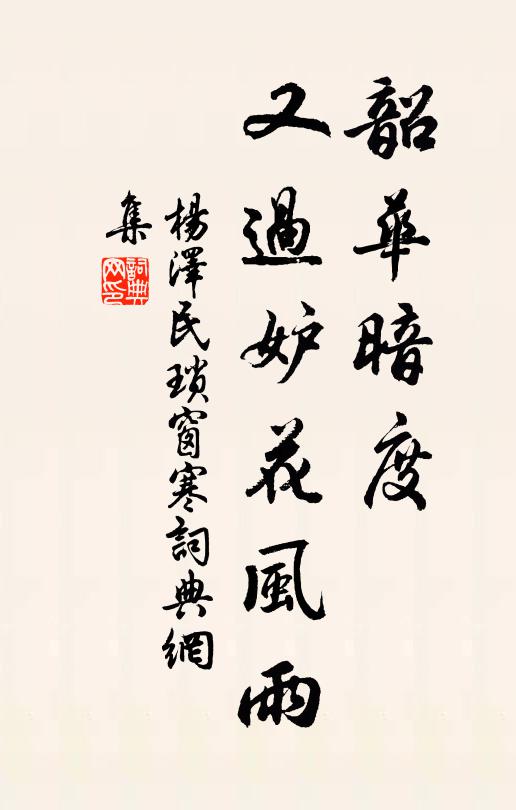 韶華暗度
又過妒花風雨
楊澤民瑣窗寒詞典網
集
詞典
网印